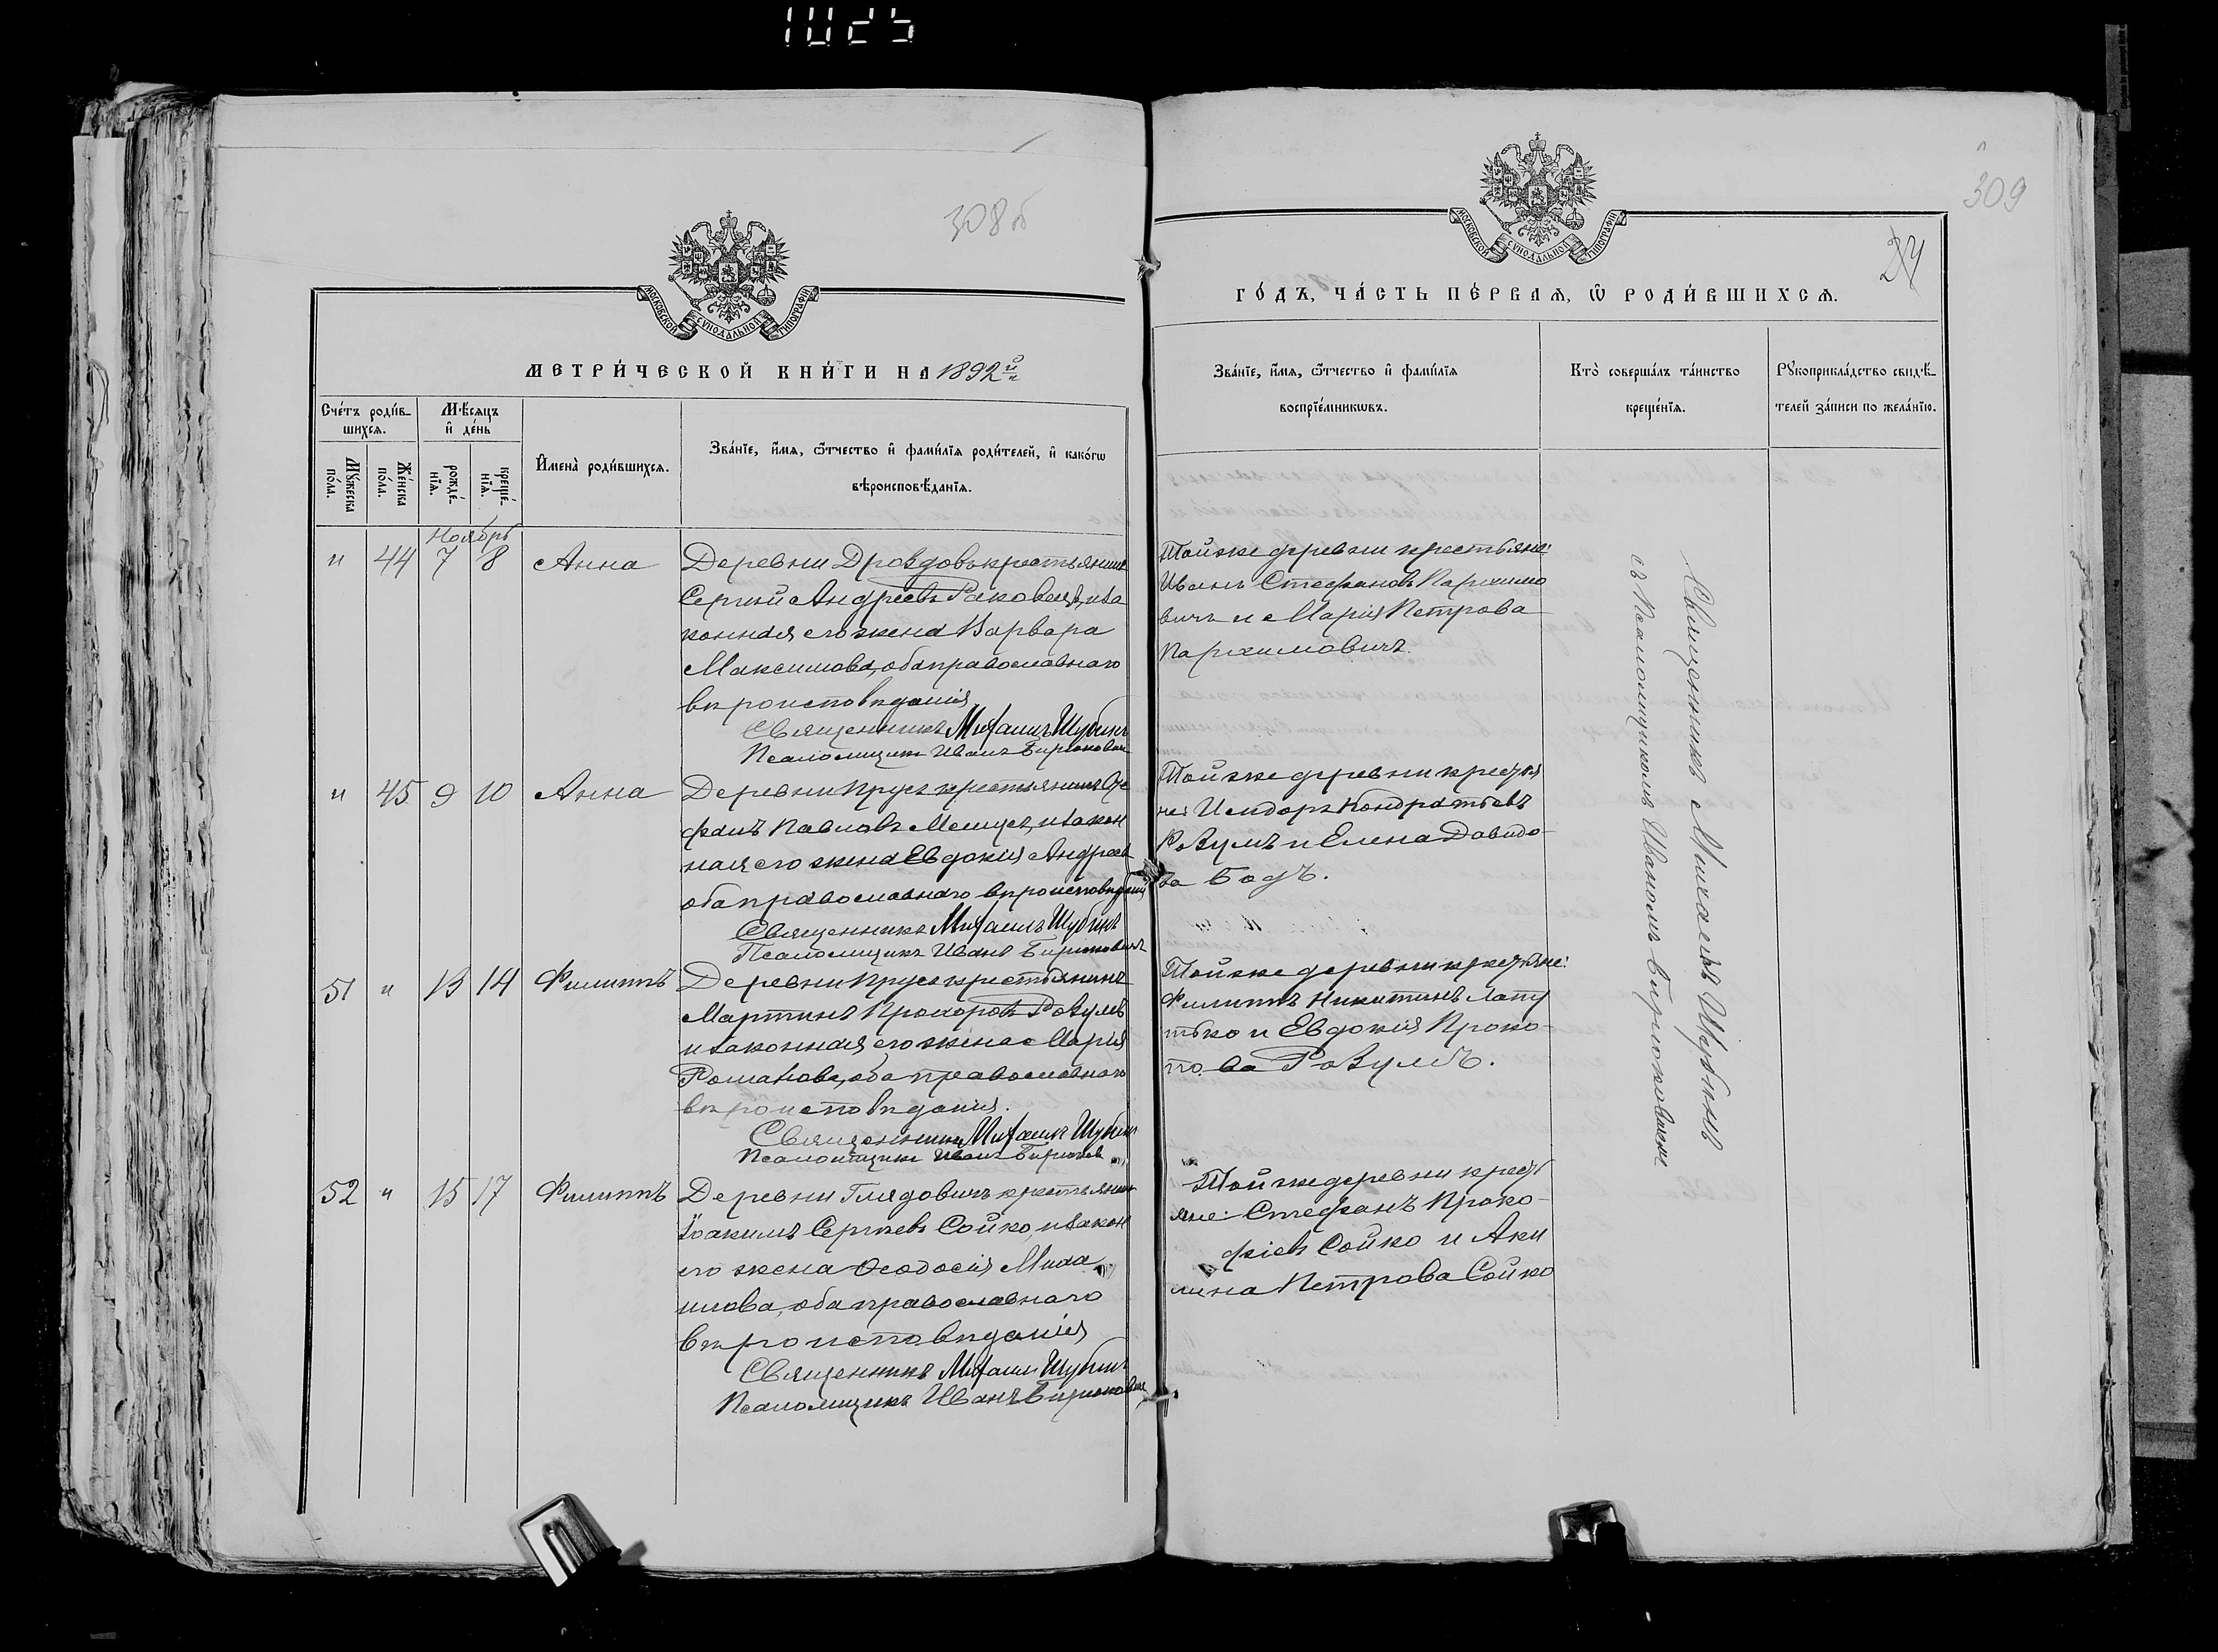 1025
308б
МОСКОВСКОЙ СѴНОДАЛЬНОЙ ТИПОГРАФІИ
МЕТРИ́ЧЕСКОЙ КНИ́ГИ НА 1892й
Сче́тъ роди́в-
шихсѧ.
Мѣ́сѧцъ
и҆ де́нь
Мꙋ́жеска
по́ла.
Же́нска
по́ла.
рожде́-
нїѧ.
креще́-
нїѧ.
И҆мена̀ роди́вшихсѧ.
Зва́нїе, и҆́мѧ, ѻ҆́тчество и҆ фами́лїѧ роди́телей, и҆ како́гѡ
вѣроисповѣ́данїѧ.
Ноябрь
" 44 7 8 Анна Деревни Дроздовъ крестьянинъ
Сергій Андреевъ Раковецъ, и за
конная его жена Варвара
Максимова, оба православнаго
вѣроисповѣданія
Священникъ Михаилъ Шубинъ
Псаломщикъ Иванъ Бирюкович
" 45 9 10 Анна Деревни Прусъ крестьянинъ Сте
фанъ Павловъ и закон
ная его жена Евдокія Андреев
оба православнаго вѣроисповѣданій
Священникъ Михаилъ Шубинъ
Псаломщикъ Иванъ Бирюковичъ
51 " 13 14 Филиппъ Деревни Прусъ крестьянинъ
Мартинъ Прохоровъ Розумъ
и законная его жена Марія
Романова, оба православнаго
вѣроисповѣданія.
Священникъ Михаилъ Шубин
Псаломщикъ Иванъ Бирюков
52 " 15 17 Филиппъ Деревни Глядовичъ крестьянин
Іоакимъ Сергѣевъ Сойко, и закон
его жена Ѳеодосія Миха
илова, оба православнаго
вѣроисповѣданія
Священникъ Михаилъ Шубинъ
Псаломщикъ Иванъ Бирюкович
309
24
МОСКОВСКОЙ СѴНОДАЛЬНОЙ ТИПОГРАФІИ
ГО́ДЪ, ЧА́СТЬ ПЕ́РВАѦ, Ѿ РОДИ́ВШИХСѦ.
Зва́нїе, и҆́мѧ, ѻ҆́тчество и҆ фами́лїѧ
воспрїе́мникѡвъ.
Кто̀ соверша́лъ та́инство
креще́нїѧ.
Рꙋкоприкла́дство свидѣ́-
телей за́писи по жела́нїю.
Тойже деревни крестьяне:
Иванъ Стефановъ Пархимо
вичъ и Марія Петрова
Пархимовичъ.
Тойже деревни крестья
не: Исидоръ Кондратьевъ
Розумъ и Елена Давидо-
ва Бодъ.
Тойже деревни крестьяне:
Филиппъ Никитинъ Лапу
тько и Евдокія Проко-
пова Розумъ.
Тойже деревни крест
яне: Стефанъ Проко-
фіевъ Сойко и Аки
лина Петрова Сойко
Священникъ Михаилъ Шубинъ
съ Псаломщикомъ Иваномъ Бирюковичемъ